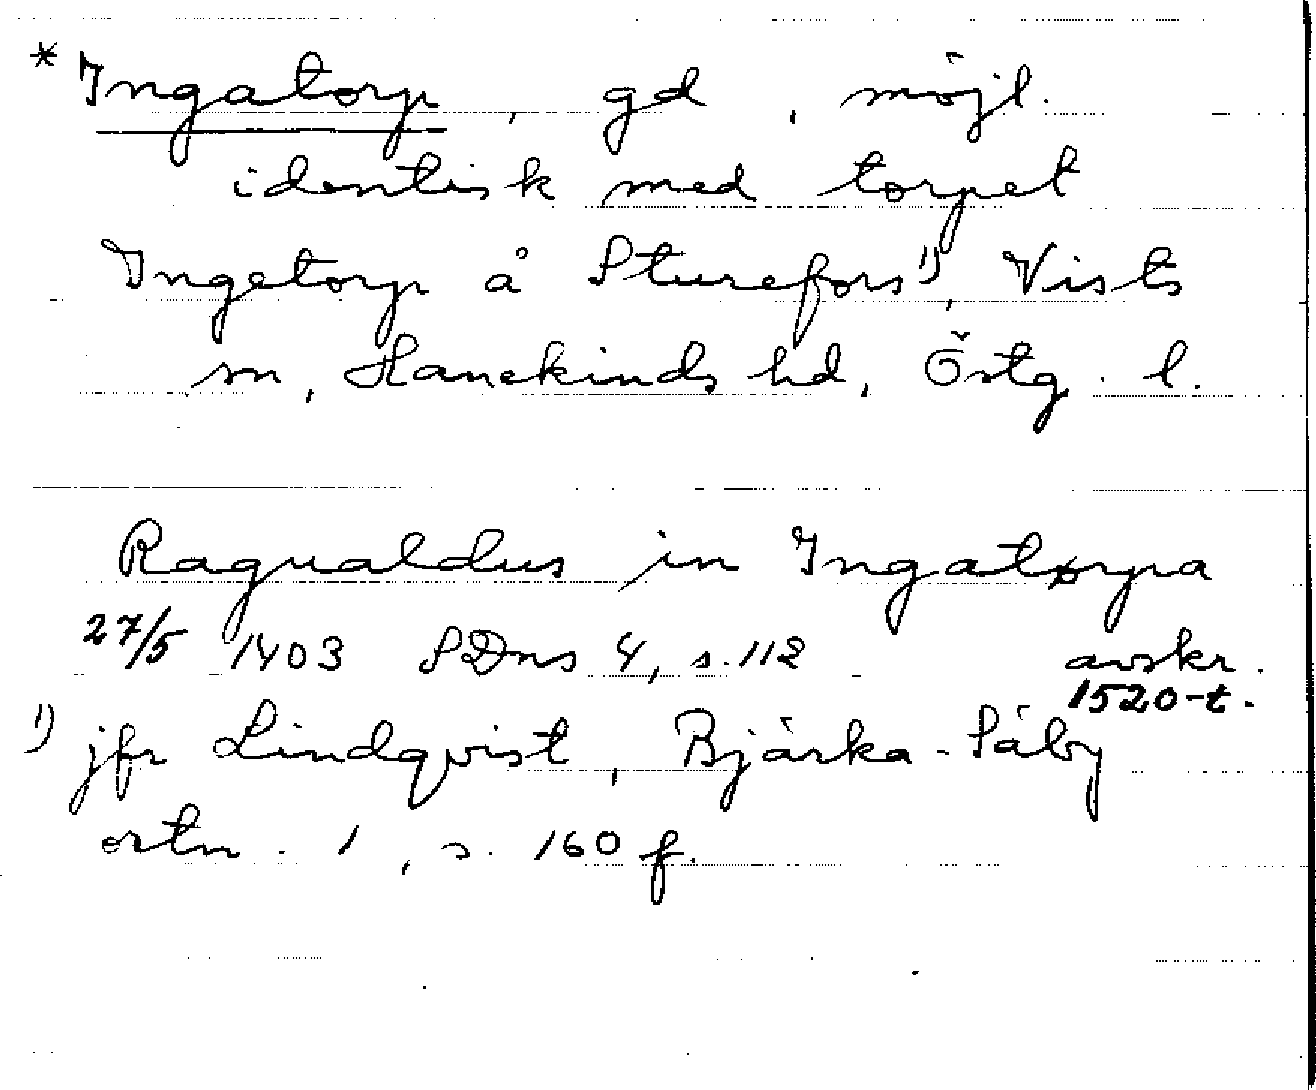 * Ingatorp, gd, möjl.
identisk med torpet
Ingetorp å Sturefors¹⁾, Vists
sn, Hanekinds hd, Östg. l.
Ragualdus in Ingatorpa
27/5 1403 SDns 4, s. 112 avskr.
1520-t.
¹⁾ jfr Lindqvist, Bjärka-Säby
ortn. 1, s. 160 f.